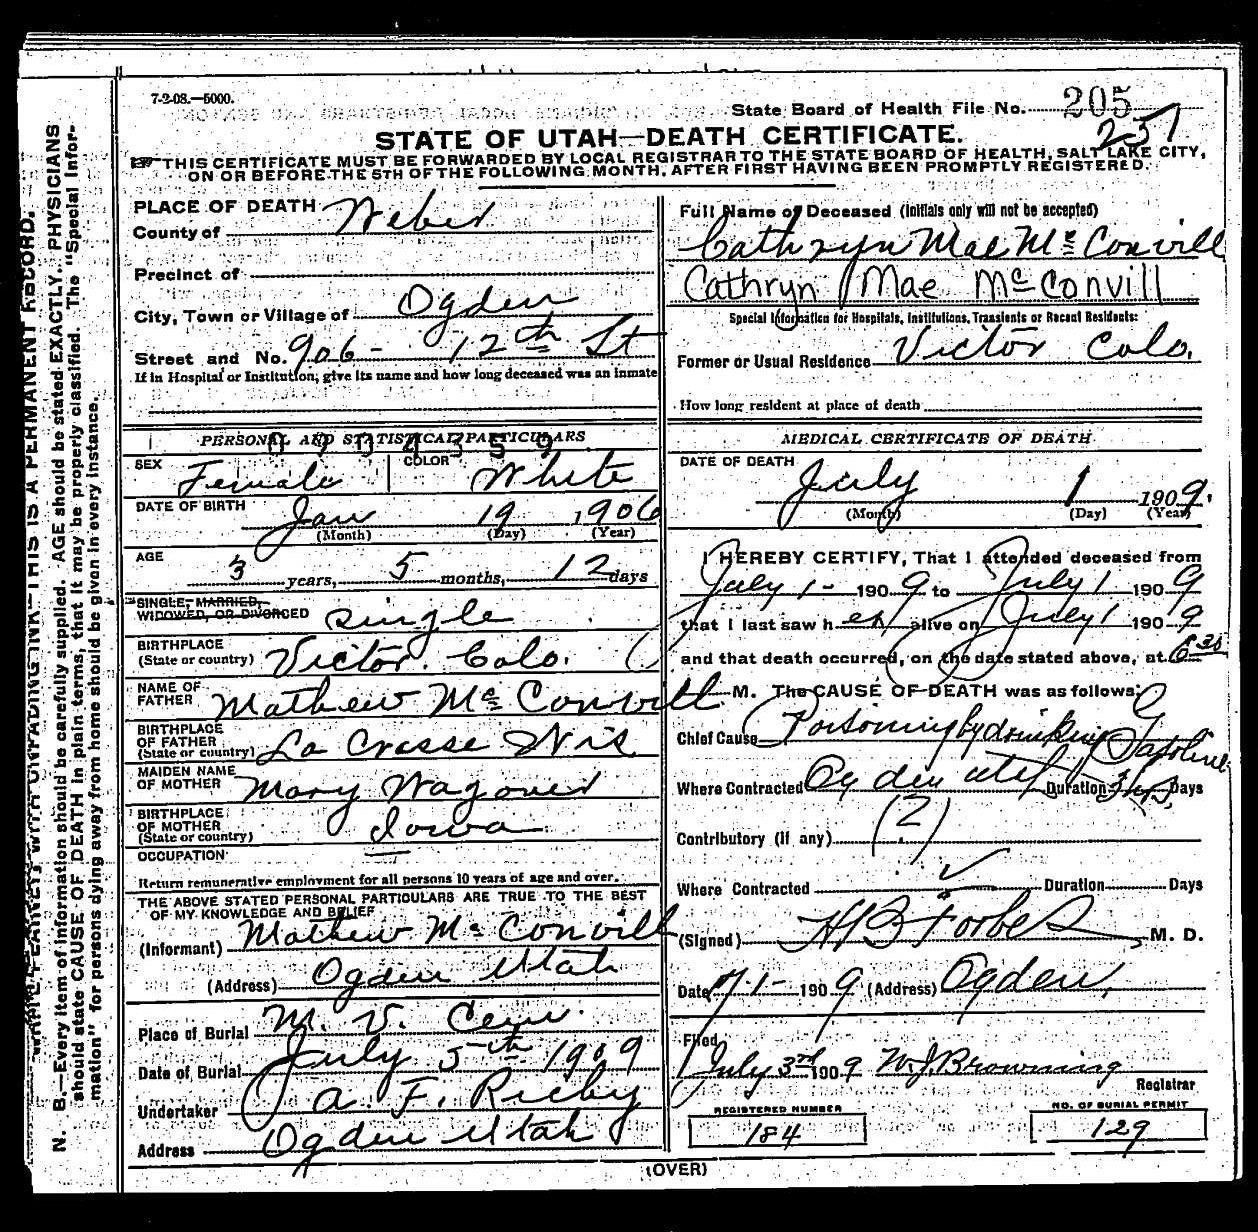 7-2-08.—5000.
State Board of Health File No. 205
257
STATE OF UTAH—DEATH CERTIFICATE.
THIS CERTIFICATE MUST BE FORWARDED BY LOCAL REGISTRAR TO THE STATE BOARD OF HEALTH, SALT LAKE CITY,
ON OR BEFORE THE 5TH OF THE FOLLOWING MONTH, AFTER FIRST HAVING BEEN PROMPTLY REGISTERED.
N. B.—Every item of information should be carefully supplied. AGE should be stated EXACTLY. PHYSICIANS
should state CAUSE OF DEATH in plain terms, that it may be properly classified. The "Special Infor-
mation" for persons dying away from home should be given in every instance.
PLACE OF DEATH
County of Weber
Precinct of
City, Town or Village of Ogden
Street and No. 906 - 12th St
If in Hospital or Institution, give its name and how long deceased was an inmate
PERSONAL AND STATISTICAL PARTICULARS
SEX Female COLOR White
DATE OF BIRTH Jan 19 1906
(Month) (Day) (Year)
AGE 3 years, 5 months, 12 days
SINGLE, MARRIED,
WIDOWED, OR DIVORCED Single
BIRTHPLACE
(State or country) Victor. Colo.
NAME OF
FATHER Mathew Mc Convill
BIRTHPLACE
OF FATHER
(State or country) La Crosse Wis
MAIDEN NAME
OF MOTHER Mary Wagoner
BIRTHPLACE
OF MOTHER
(State or country) Iowa
OCCUPATION —
Return remunerative employment for all persons 10 years of age and over.
THE ABOVE STATED PERSONAL PARTICULARS ARE TRUE TO THE BEST
OF MY KNOWLEDGE AND BELIEF
(Informant) Mathew Mc Convill
(Address) Ogden Utah
Place of Burial M. V. Cem.
Date of Burial July 5th 1909
Undertaker A. F.
Address Ogden Utah
Full Name of Deceased (Initials only will not be accepted)
Cathryn Mae Mc Convill
Cathryn Mae McConvill
Special Information for Hospitals, Institutions, Transients or Recent Residents:
Former or Usual Residence Victor Colo.
How long resident at place of death
MEDICAL CERTIFICATE OF DEATH
DATE OF DEATH
July 1 1909.
(Month) (Day) (Year)
I HEREBY CERTIFY, That I attended deceased from
July 1 - 1909 to July 1 1909
that I last saw her alive on July 1 1909
and that death occurred, on the date stated above, at 6 30
M. The CAUSE OF DEATH was as follows:
Chief Cause Poisoning by drinking Gasoline
Where Contracted Ogden Utah Duration 3 hrs. Days
Contributory (if any) (?)
Where Contracted Duration Days
(Signed) H B Forbes M. D.
Date 7-1- 1909 (Address) Ogden.
Filed
July 3rd 1909 W. J. Browning
Registrar
REGISTERED NUMBER
184
NO. OF BURIAL PERMIT
129
(OVER)